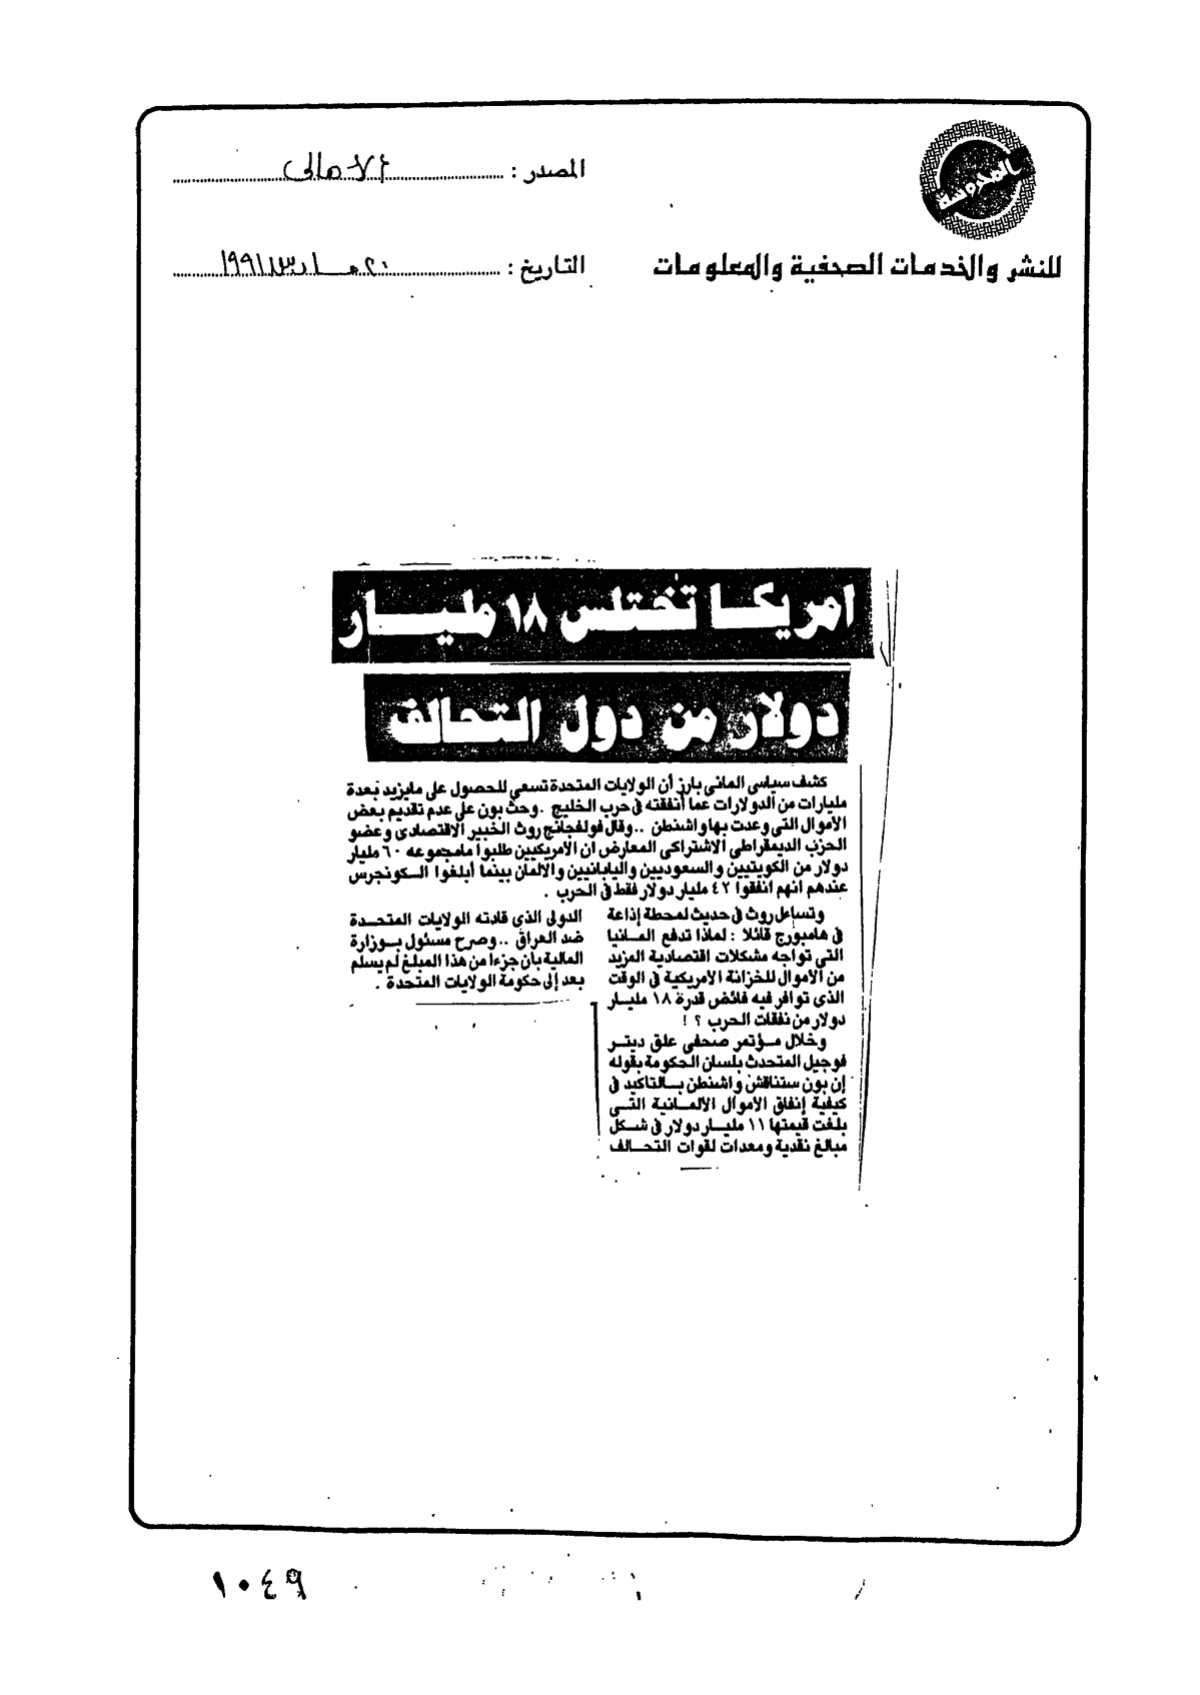 المحروسة
المصدر : الاهالى
للنشر والخدمات الصحفية والمعلومات
التاريخ : ٢٠ مارس ١٩٩١
امريكا تختلس ١٨ مليار
دولار من دول التحالف
كشف سياسى المانى بارز أن الولايات المتحدة تسعي للحصول على مايزيد بعدة
مليارات من الدولارات عما أنفقته فى حرب الخليج . وحث بون على عدم تقديم بعض
الأموال التى وعدت بها واشنطن .. وقال فولفجانج روث الخبير الاقتصادى وعضو
الحزب الديمقراطى الاشتراكى المعارض ان الامريكيين طلبوا مامجموعه ٦٠ مليار
دولار من الكويتيين والسعوديين واليابانيين والالمان بينما أبلغوا الكونجرس
عندهم انهم انفقوا ٤٢ مليار دولار فقط فى الحرب .
وتساءل روث فى حديث لمحطة إذاعة
فى هامبورج قائلا : لماذا تدفع المانيا
التى تواجه مشكلات اقتصادية المزيد
من الاموال للخزانة الامريكية فى الوقت
الذى توافر فيه فائض قدرة ١٨ مليار
دولار من نفقات الحرب ؟ !
وخلال مؤتمر صحفى علق ديتر
فوجيل المتحدث بلسان الحكومة بقوله
إن بون ستناقش واشنطن بالتاكيد فى
كيفية إنفاق الاموال الالمانية التى
بلغت قيمتها ١١ مليار دولار فى شكل
مبالغ نقدية ومعدات لقوات التحالف
الدولى الذى قادته الولايات المتحدة
ضد العراق .. وصرح مسئول بوزارة
المالية بان جزءا من هذا المبلغ لم يسلم
بعد إلى حكومة الولايات المتحدة .
١٠٤٩